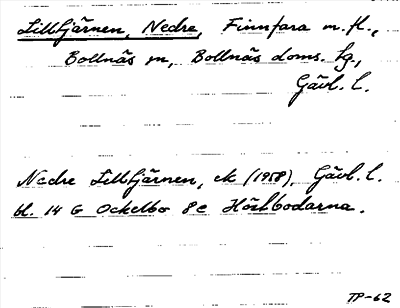 Lilltjärnen, Nedre, Finnfara m. fl.,
Bollnäs sn, Bollnäs doms. tg.,
Gävl. l.
Nedre Lilltjärnen, ek (1958), Gävl. l.
bl. 14 G Ockelbo 8e Hästbodarna.
TP-62